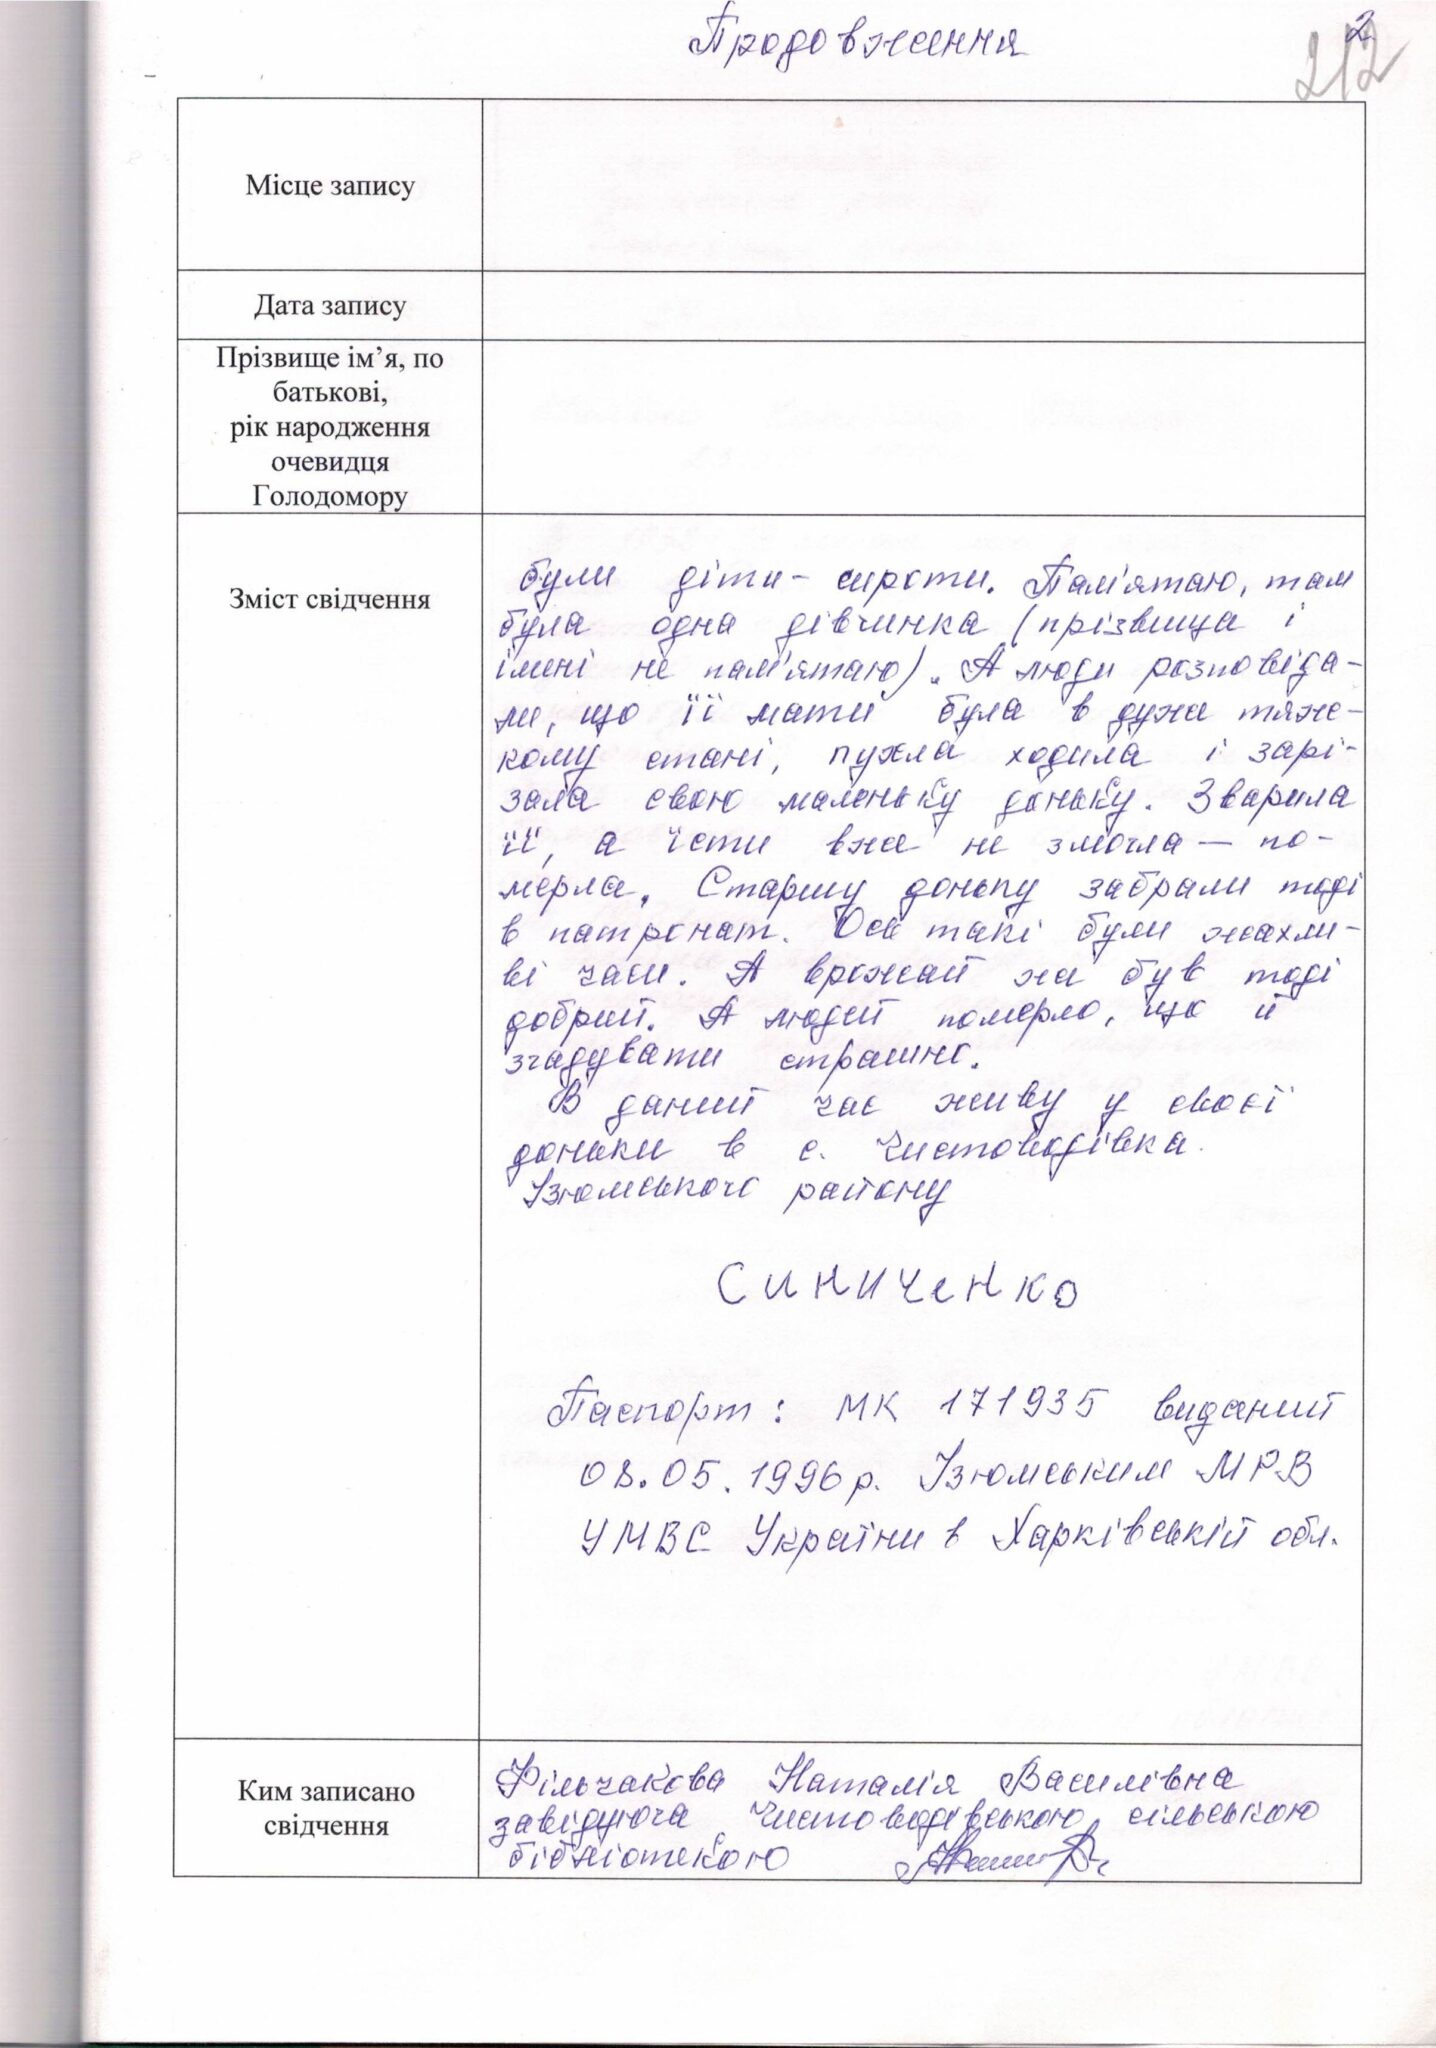 Продовження
2
212
Місце запису
Дата запису
Прізвище ім’я, по
батькові,
рік народження
очевидця
Голодомору
Зміст свідчення
були діти-сироти. Пам'ятаю, там
була одна дівчинка (прізвища і
імені не пам'ятаю). А люди розповіда-
ли, що її мати була в дуже тяж-
кому стані, пухла ходила і зарі-
зала свою маленьку доньку. Зварила
її, а їсти вже не змогла — по-
мерла. Старшу доньку забрали тоді
в патронат. Ось такі були жахли-
ві часи. А врожай же був тоді
добрий. А людей померло, що й
згадувати страшно.
В даний час живу у своєї
доньки в с. Чистоводівка
Ізюмського району
Синиченко
Паспорт: МК 171935 виданий
08.05.1996р. Ізюмським МРВ
УМВС України в Харківській обл.
Ким записано
свідчення
Фільчакова Наталія Василівна
завідуюча Чистоводівською сільською
бібліотекою